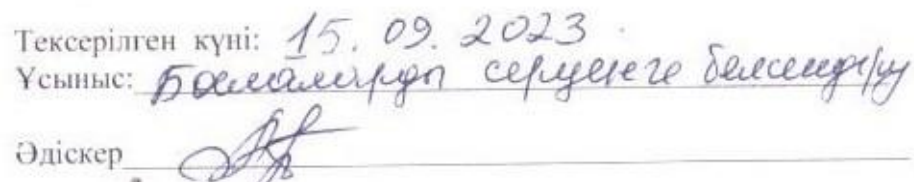 Тексерілген күні: 15. 09. 2023
Ұсыныс: Балаларды серуенге белсендіру
Әдіскер